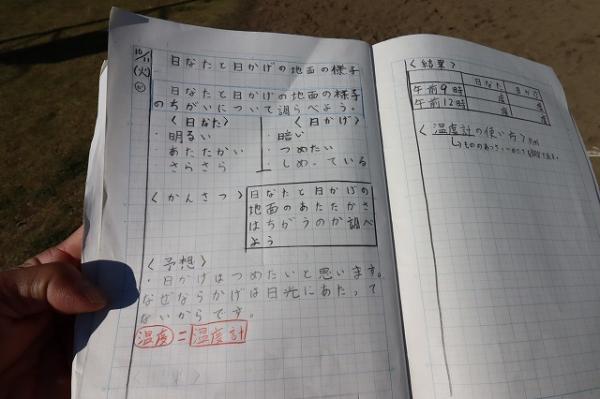 10/11
(火)
日なたと日かげの地面の様子
日なたと日かげの地面の様子
のちがいについて調らべよう。
〈日なた〉 〈日かげ〉
・明るい ・暗い
・あたたかい ・つめたい
・さらさら ・しめっている
〈かんさつ〉
日なたと日かげの
地面のあたたかさ
はちがうのか調べ
よう
〈予想〉
・日かげはつめたいと思います。
なぜならかげは日光にあたって
ないからです。
温度=温度計
〈結果〉
日なた 日かげ
午前9時 度 度
午前12時 度 度
〈温度計の使い方〉